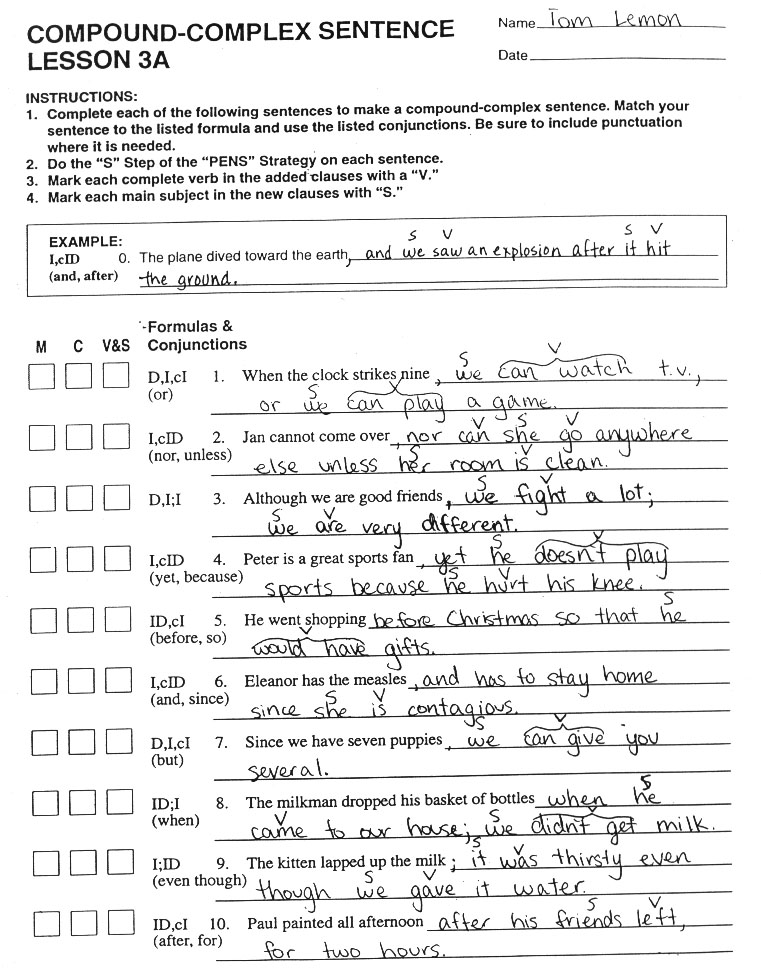 COMPOUND-COMPLEX SENTENCE
LESSON 3A
Name Tom Lemon
Date
INSTRUCTIONS:
1. Complete each of the following sentences to make a compound-complex sentence. Match your
sentence to the listed formula and use the listed conjunctions. Be sure to include punctuation
where it is needed.
2. Do the “S” Step of the “PENS” Strategy on each sentence.
3. Mark each complete verb in the added clauses with a “V.”
4. Mark each main subject in the new clauses with “S.”
S V S V
EXAMPLE:
I,cID 0. The plane dived toward the earth, and we saw an explosion after it hit
(and, after) the ground.
Formulas &
M C V&S Conjunctions
S V
D,I,cI 1. When the clock strikes nine, we can watch t.v.,
S V
(or) or we can play a game.
V S V
I,cID 2. Jan cannot come over, nor can she go anywhere
S V
(nor, unless) else unless her room is clean.
S V
D,I;I 3. Although we are good friends, we fight a lot;
S V
we are very different.
S V
I,cID 4. Peter is a great sports fan, yet he doesn't play
S V
(yet, because) sports because he hurt his knee.
S
ID,cI 5. He went shopping before Christmas so that he
V
(before, so) would have gifts.
I,cID 6. Eleanor has the measles, and has to stay home
S V
(and, since) since she is contagious.
S V
D,I,cI 7. Since we have seven puppies, we can give you
(but) several.
S
ID;I 8. The milkman dropped his basket of bottles when he
V S V
(when) came to our house; we didn't get milk.
S V
I;ID 9. The kitten lapped up the milk; it was thirsty even
S V
(even though) though we gave it water.
S V
ID,cI 10. Paul painted all afternoon after his friends left,
(after, for) for two hours.